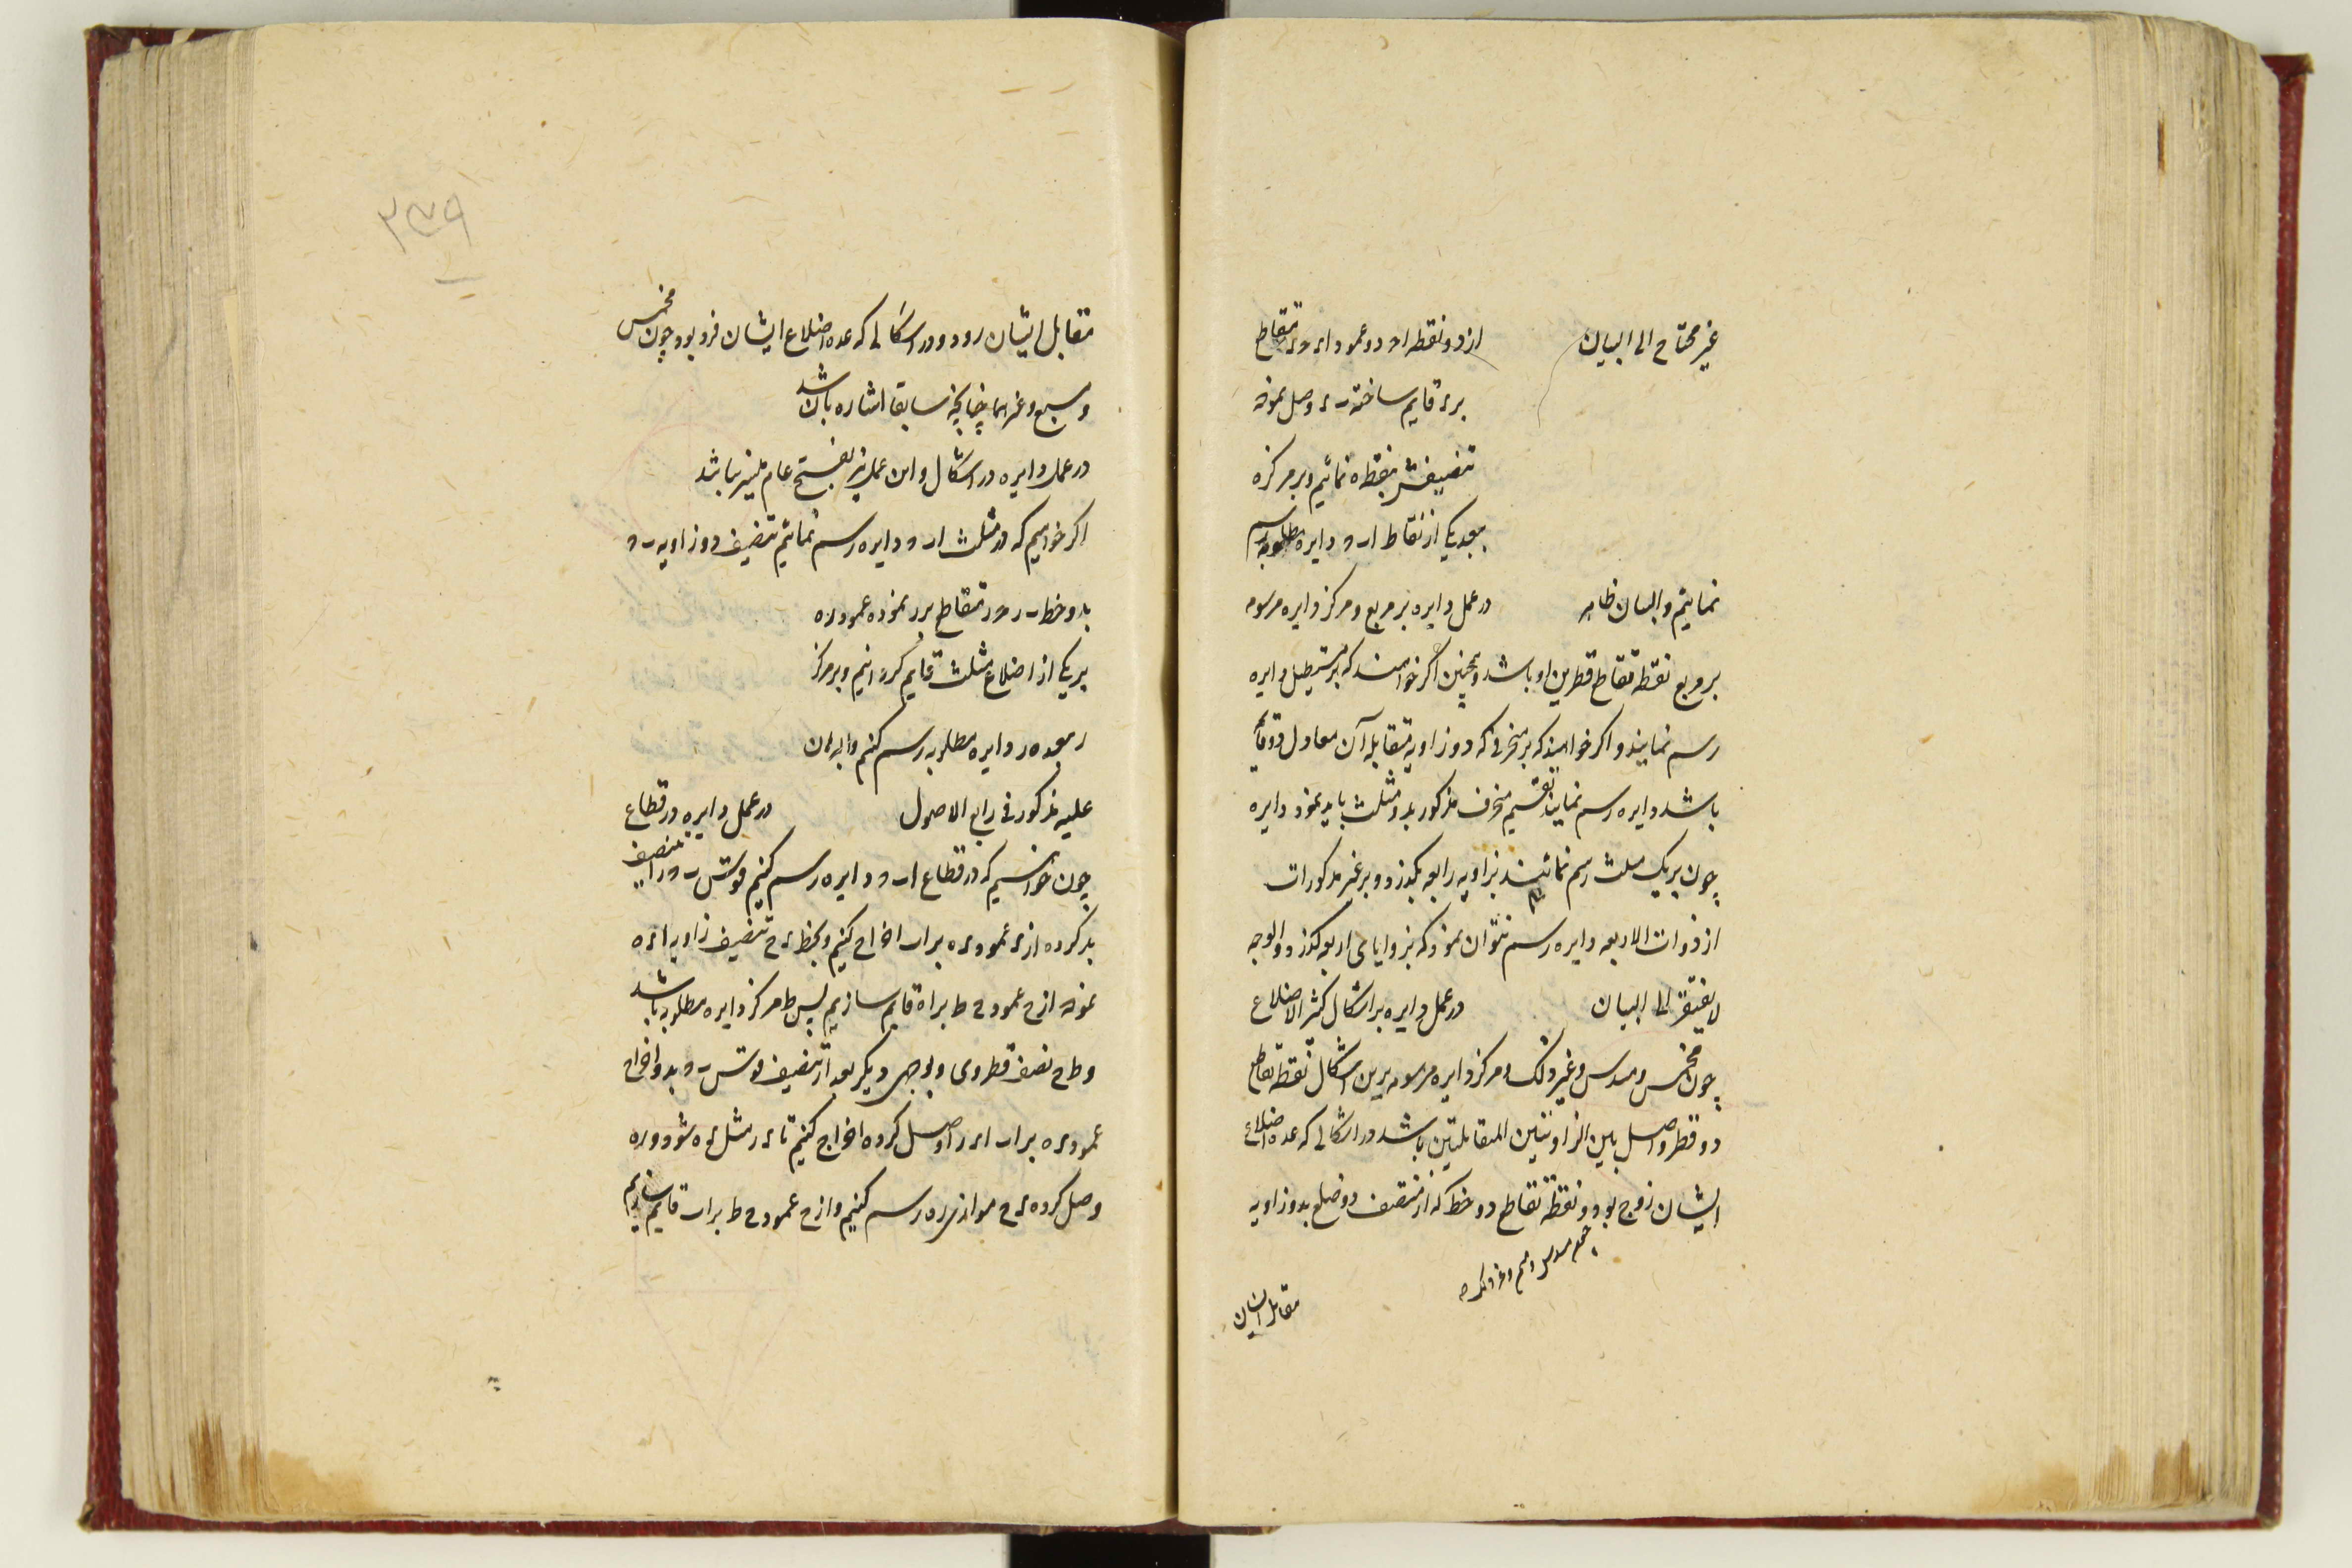 غیر محتاج الی البیان از دو نقطه ا ح دو عمود ا ء ح ء متقاطع
بر ء قایم ساخته ب ء وصل نموده
تنصیفش بنقطه ه نمائیم و بر مرکز ه
ببعد یکی از نقاط ا ب ح دایره مطلوبه رسم
نمائیم و البیان ظاهر در عمل دایره بر مربع و مرکز دایره مرسومه
بر مربع نقطه تقاطع قطرین او باشد و همچنین اگر خواهند که بر مستطیل دایره
رسم نمایند و اگر خواهند که بر منحرفی که دو زاویه متقابله آن معادل دو قائمه
باشد دایره رسم نمایند تقسیم منحرف مذکور بدو مثلث باید نمود و دایره
چون بر یک مثلث رسم نمائیند بزاویه رابعه بگذرد و بر غیر مذکورات
از ذوات الاربعه دایره رسم نتوان نمود که بزوایای اربعه بگذرد و الوجه
لا یفتقر الی البیان در عمل دایره بر اشکال کثیر الاضلاع
چون مخمس و مسدس و غیر ذلک و مرکز دایره مرسومه برین اشکال نقطه تقاطع
دو قطر واصل بین الزاویتین المتقابلتین باشد در اشکالی که عده اضلاع
ایشان زوج بود و نقطه تقاطع دو خط که از منتصف دو ضلع بدو زاویه
مقابل ایشان
۲۳۹
مقابل ایشان رود و در اشکالی که عده اضلاع ایشان فرد بود چون مخمس
و مسبع و غیرهما چنانچه سابقا اشاره بآن شد
در عمل دایره در اشکال و این عمل نیز بفتح عام میسر باشد
اگر خواهیم که در مثلث ا ب ح دایره رسم نمائیم تنصیف دو زاویه ب ح
بدو خط ب ر ح ر متقاطع بر ر نموده عمود ر ه
بر یکی از اضلاع مثلث قایم گردانیم و بر مرکز
ر ببعد ه ر دایره مطلوبه رسم کنیم و البرهان
علیه مذکور فی رابع الاصول در عمل دایره در قطاع
چون خواهیم که در قطاع ا ب ح دایره رسم کنیم قوس ب ح را تنصیف
بد کرده از ء عمود ء ه بر ا ب اخراج کنیم و بخط ء ح تنصیف زاویه ا ء ه
نموده از ح عمود ح ط بر ا ه قایم سازیم پس ط مرکز دایره مطلوبه باشد
و ط ح نصف قطر وی و بوجهی دیگر بعد از تنصیف قوس ب ح بد و اخراج
عمود ء ه بر ا ب ا ء را وصل کرده اخراج کنیم تا ء ر مثل ء ه شود و ر ه
وصل کرده ء ح موازی ر ه رسم کنیم و از ح عمود ح ط بر ا ب قایم سازیم